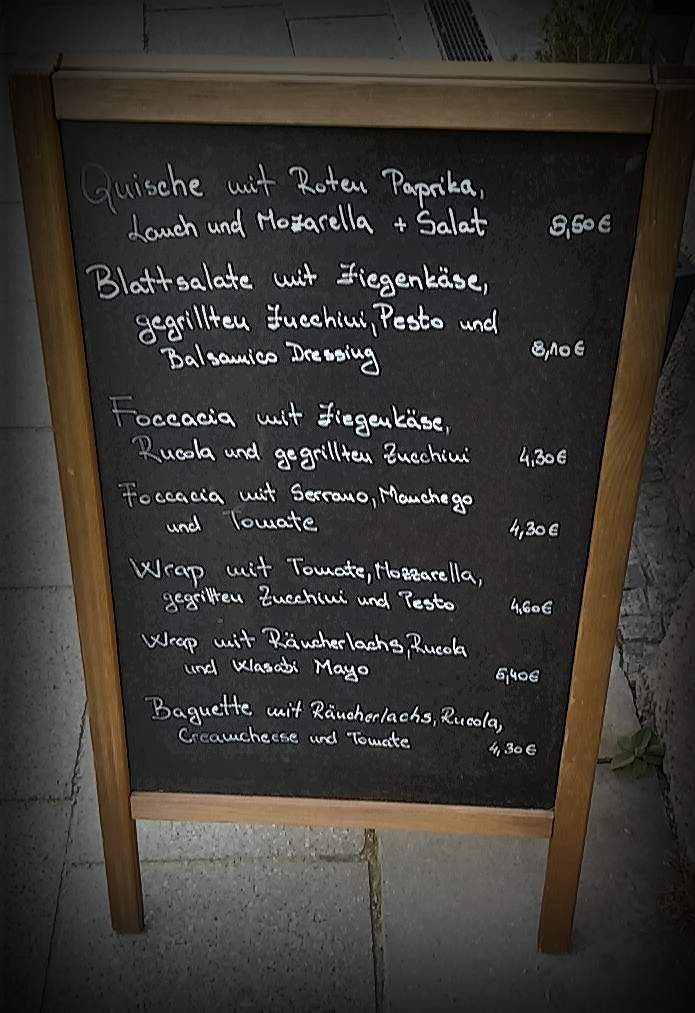 Quische mit Roten Paprika,
Lauch und Mozarella + Salat 8,50€
Blattsalate mit Ziegenkäse,
gegrillten Zucchini, Pesto und
Balsamico Dressing 8,10€
Foccacia mit Ziegenkäse,
Rucola und gegrillten Zucchini 4,30€
Foccacia mit Serrano, Manchego
und Tomate 4,30€
Wrap mit Tomate, Mozzarella,
gegrillten Zucchini und Pesto 4,60€
Wrap mit Räucherlachs, Rucola
und Wasabi Mayo 5,40€
Baguette mit Räucherlachs, Rucola,
Creamcheese und Tomate 4,30€